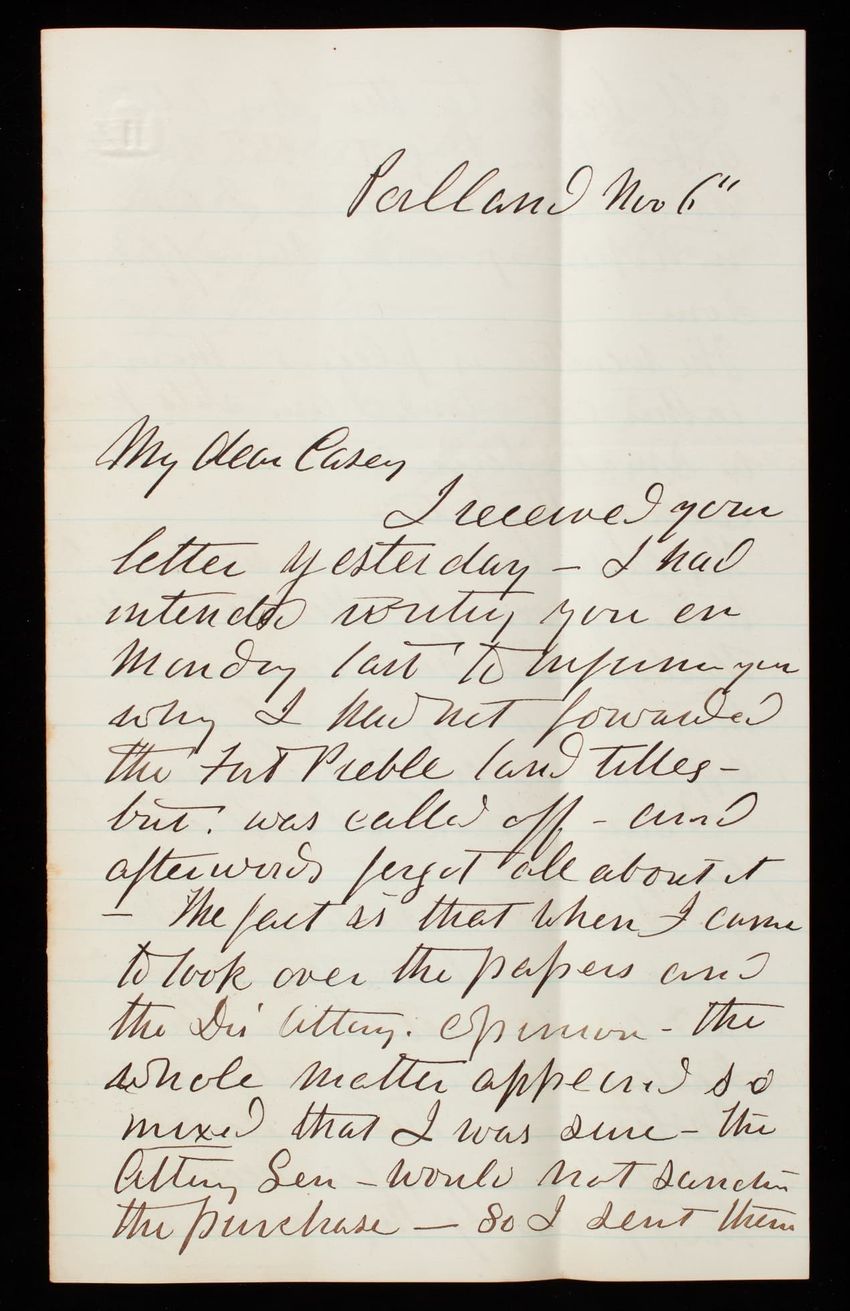 Portland Nov 6"
My dear Casey
I received your
letter yesterday - I had
intended writing you on
Monday last to inform you
why I had not forwarded
the Fort Preble land titles -
but was called off - and
afterwords forgot all about it
- The fact is that when I came
to look over the papers and
the Dis' Attny. opinion - the
whole matter appeared so
mixed that I was sure - the
Attny Gen - would not sanction
the purchase - so I sent them